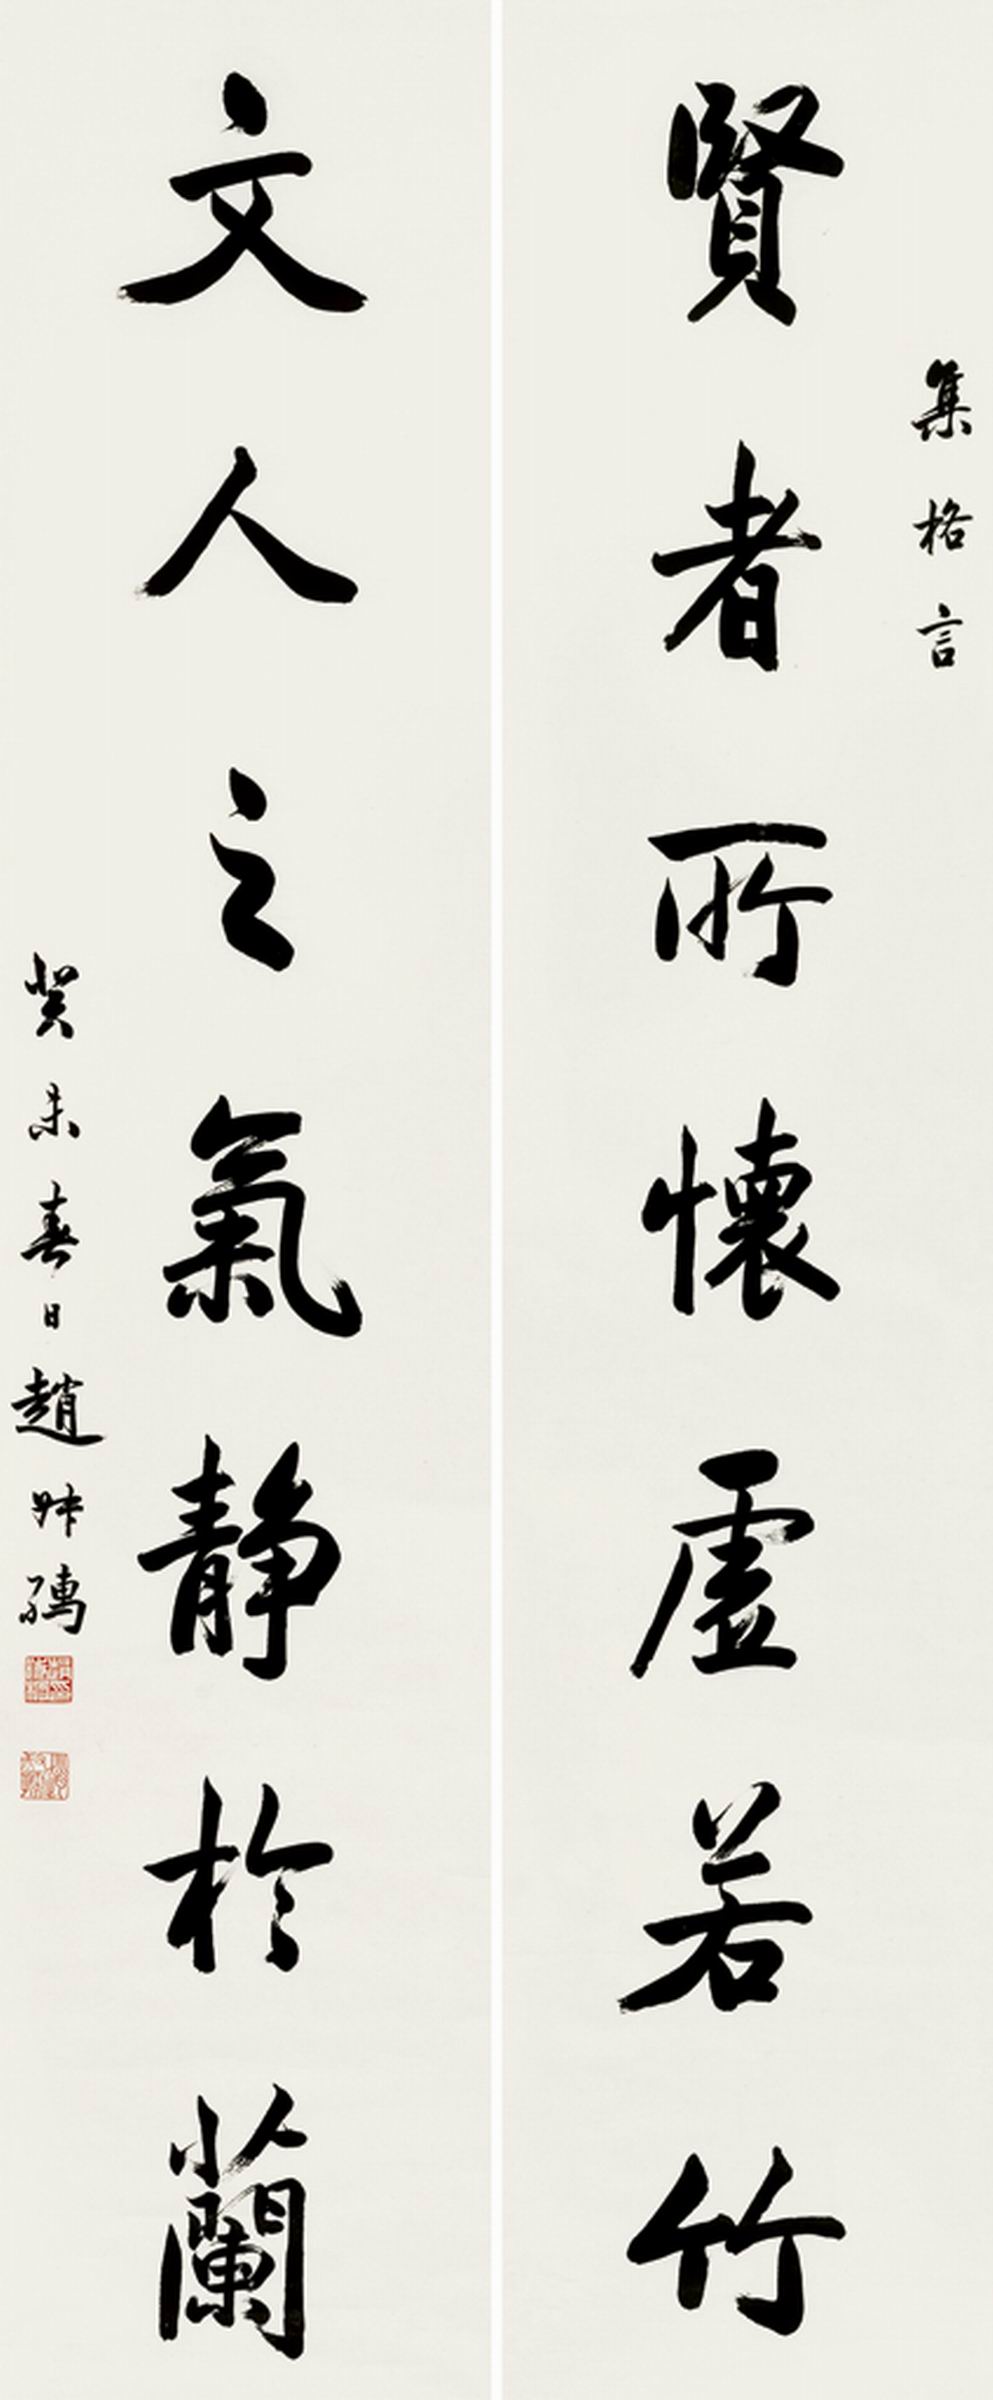 集格言
賢者所懷虛若竹
文人之氣靜於蘭
癸未春日趙叔孺